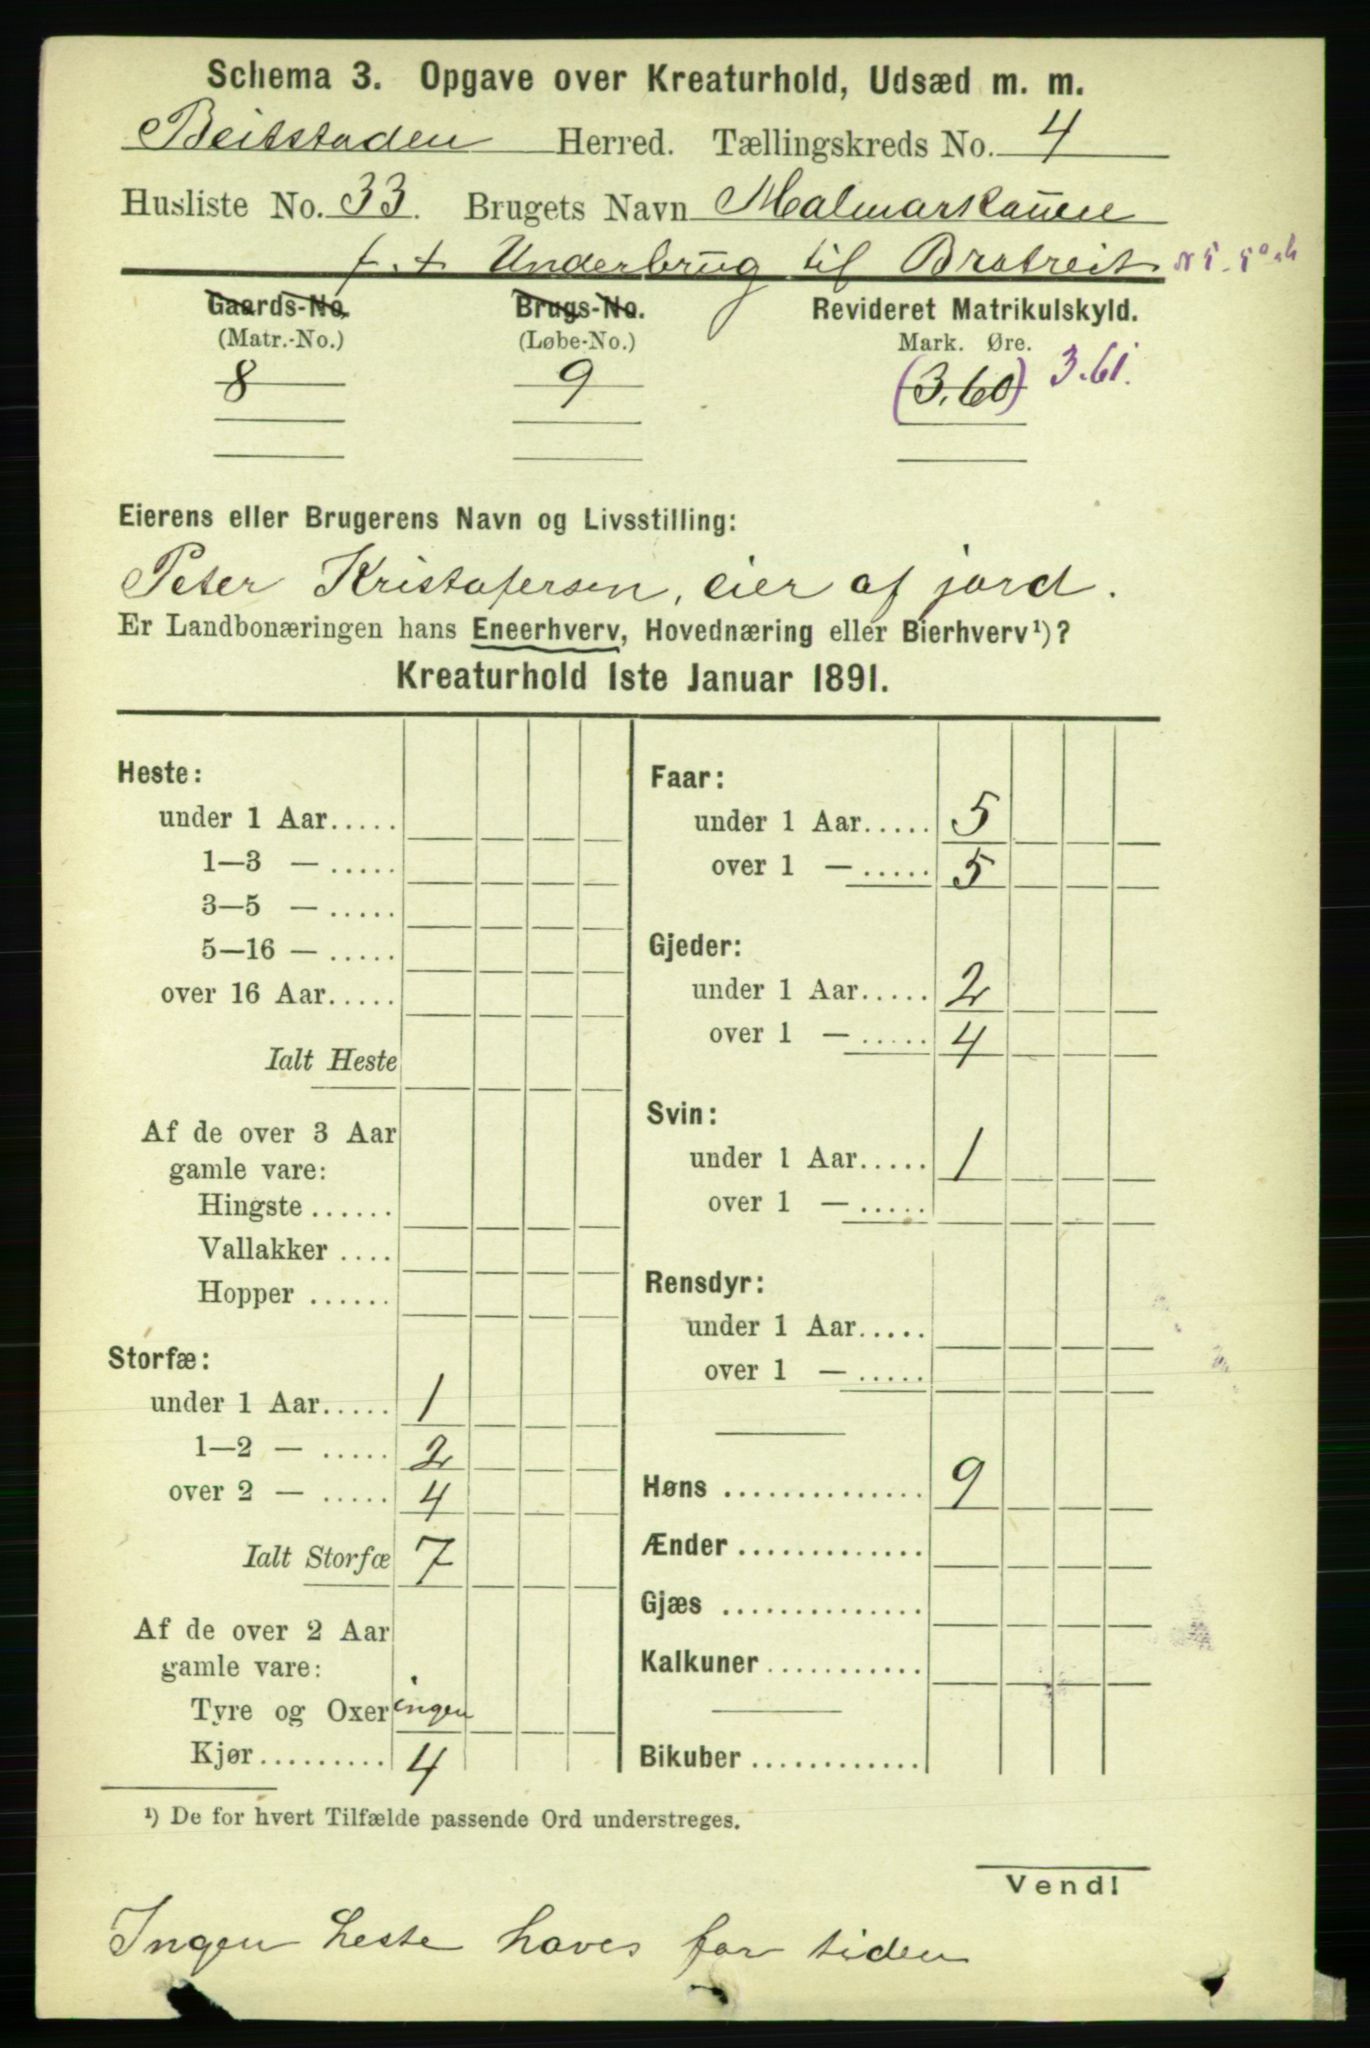 Schema 3. Opgave over Kreaturhold, Udsæd m. m.
Beitstaden Herred. Tællingskreds No. 4
Husliste No. 33. Brugets Navn
f. t. Underbrug til Bratreit
Gaards-No. Brugs-No. Revideret Matrikulskyld.
(Matr.-No.) (Løbe-No.) Mark. Øre.
8 9 (3.60) 3.61.
Eierens eller Brugerens Navn og Livsstilling:
Peter Kristofersen, eier af jord.
Er Landbonæringen hans Eneerhverv, Hovednæring eller Bierhverv¹)?
Kreaturhold 1ste Januar 1891.
Heste:
under 1 Aar.....
1—3 — .....
3—5 — .....
5—16 — .....
over 16 Aar.....
Ialt Heste
Af de over 3 Aar
gamle vare:
Hingste ......
Vallakker ....
Hopper ......
Storfæ:
under 1 Aar..... 1
1—2 — ..... 2
over 2 — ..... 4
Ialt Storfæ 7
Af de over 2 Aar
gamle vare:
Tyre og Oxer ingen
Kjør......... 4
Faar:
under 1 Aar..... 5
over 1 — ..... 5
Gjeder:
under 1 Aar..... 2
over 1 — ..... 4
Svin:
under 1 Aar..... 1
over 1 — .....
Rensdyr:
under 1 Aar.....
over 1 — .....
Høns .............. 9
Ænder .............
Gjæs ..............
Kalkuner...........
Bikuber ............
¹) De for hvert Tilfælde passende Ord understreges.
Vend!
Ingen heste haves for tiden